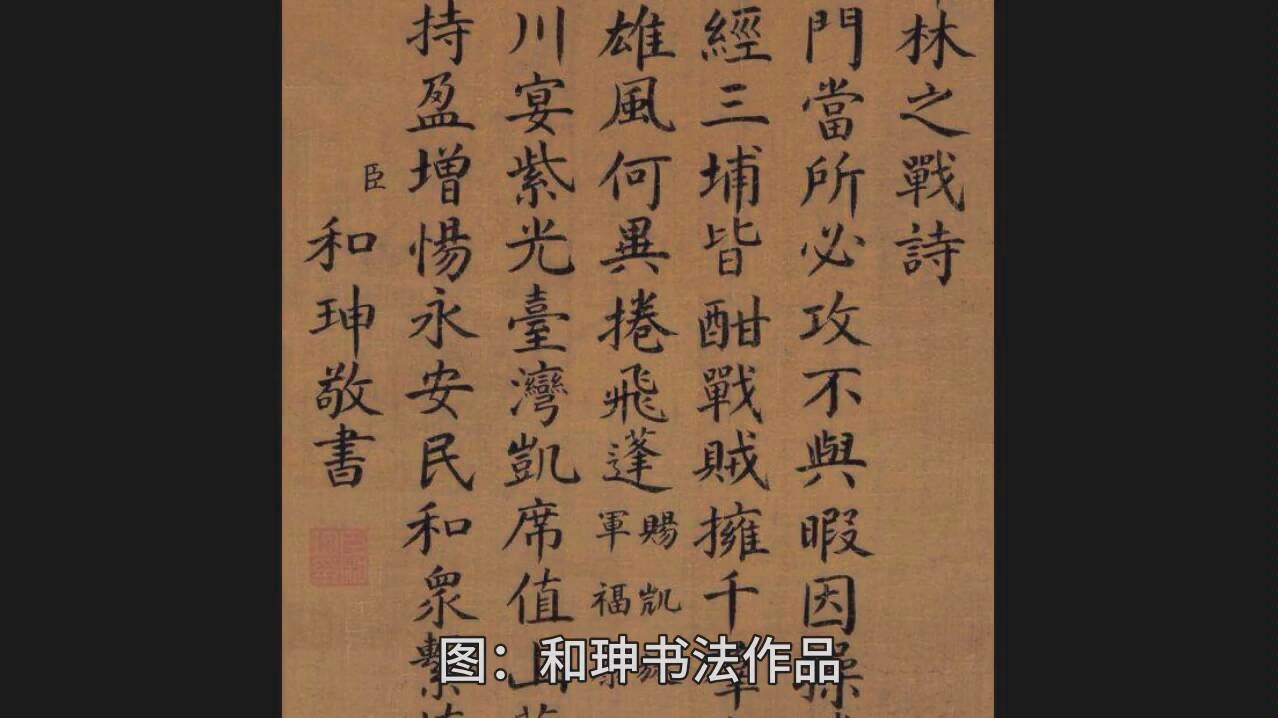 林之戰詩
門當所必攻不與暇因操
經三埔皆酣戰賊擁千羣
雄風何異捲飛蓬
賜凱
軍福
川宴紫光臺灣凱席值山莊
持盈增惕永安民和衆繫
臣
和珅敬書
图：和珅书法作品